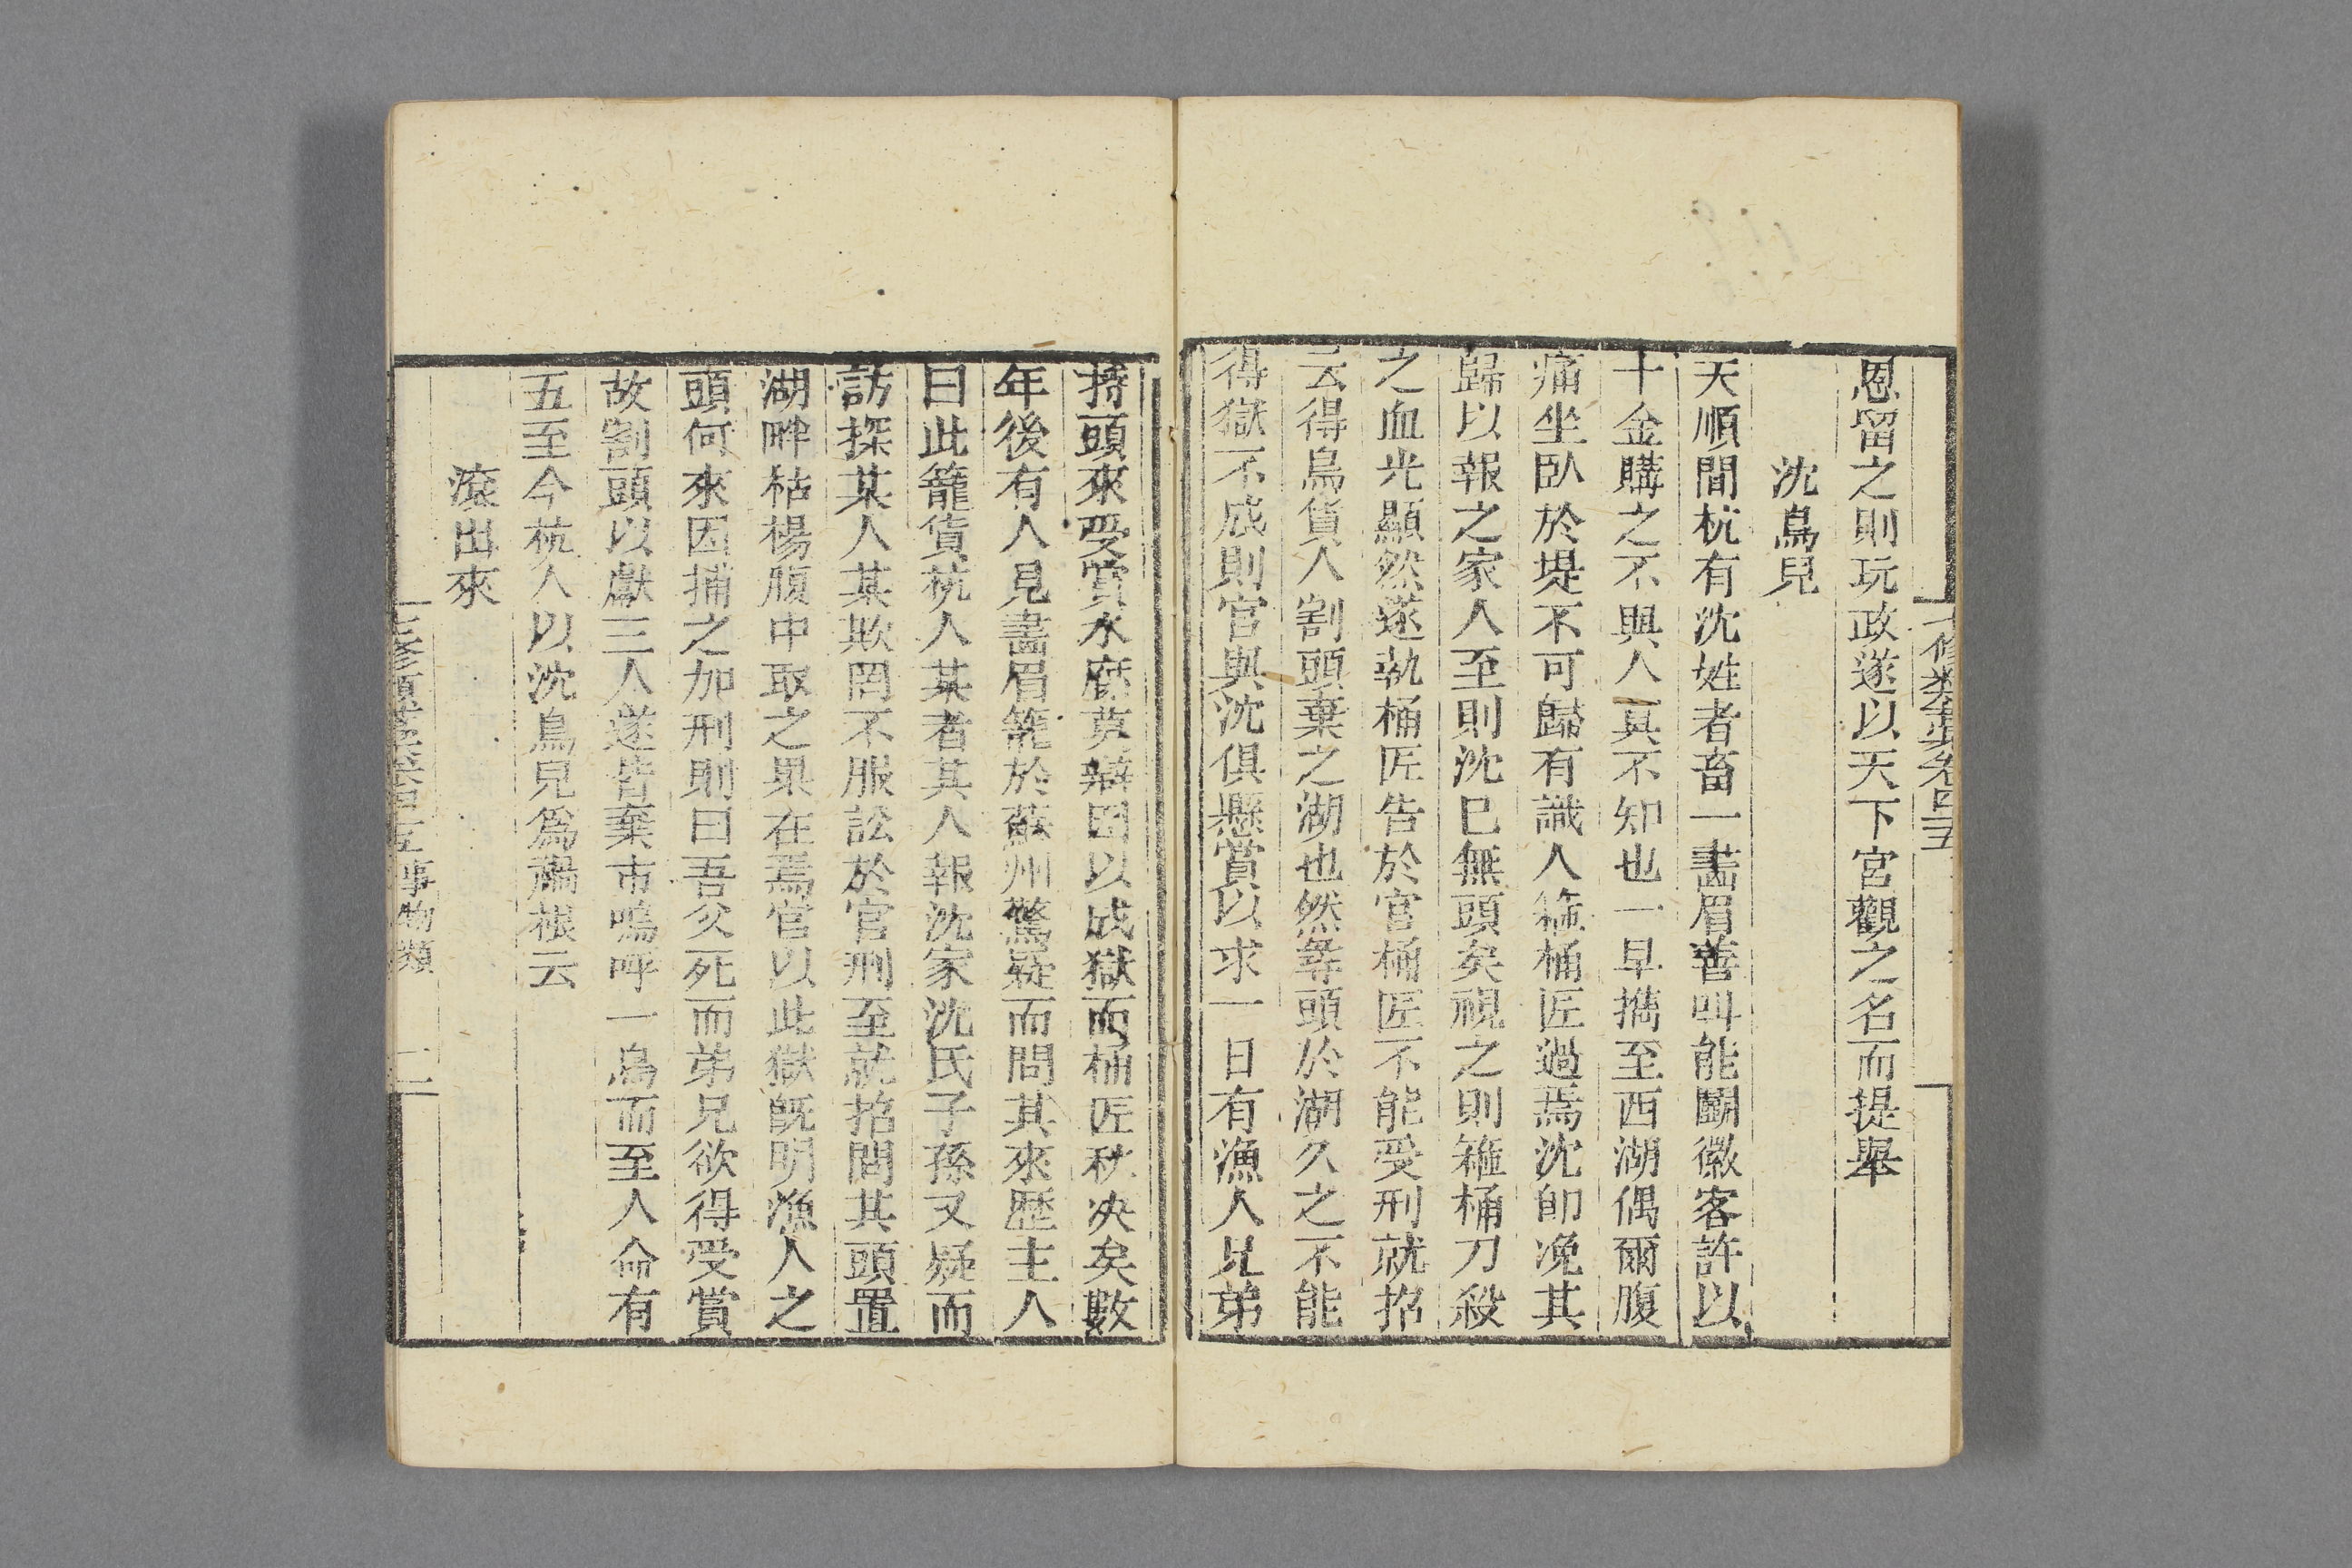 七修類藁卷四五
恩留之則玩政遂以天下宮觀之名而提舉
沈鳥兒
天順間杭有沈姓者畜一畵眉善叫能鬭徽客許以
十金購之不與人莫不知也一早擕至西湖偶爾腹
痛坐臥於堤不可歸有識人箍桶匠過焉沈卽凂其
歸以報之家人至則沈巳無頭矣視之則箍桶刀殺
之血光顯然遂執桶匠告於官桶匠不能受刑就招
云得鳥貨人割頭棄之湖也然尋頭於湖久之不能
得獄不成則官與沈俱懸賞以求一日有漁人兄弟
持頭來受賞水糜莫辯因以成獄而桶匠秋决矣數
年後有人見畵眉籠於蘇州驚疑而問其來歷主人
曰此籠貨杭人某者其人報沈家沈氏子孫又疑而
訪探某人某欺罔不服訟於官刑至就招問其頭置
湖畔枯楊腹中取之果在焉官以此獄旣明漁人之
頭何來因捕之加刑則曰吾父死而弟兄欲得受賞
故割頭以獻三人遂皆棄市嗚呼一鳥而至人命有
五至今杭人以沈鳥兒爲禍根云
滾出來
七修類藁卷四十五 事物類 二